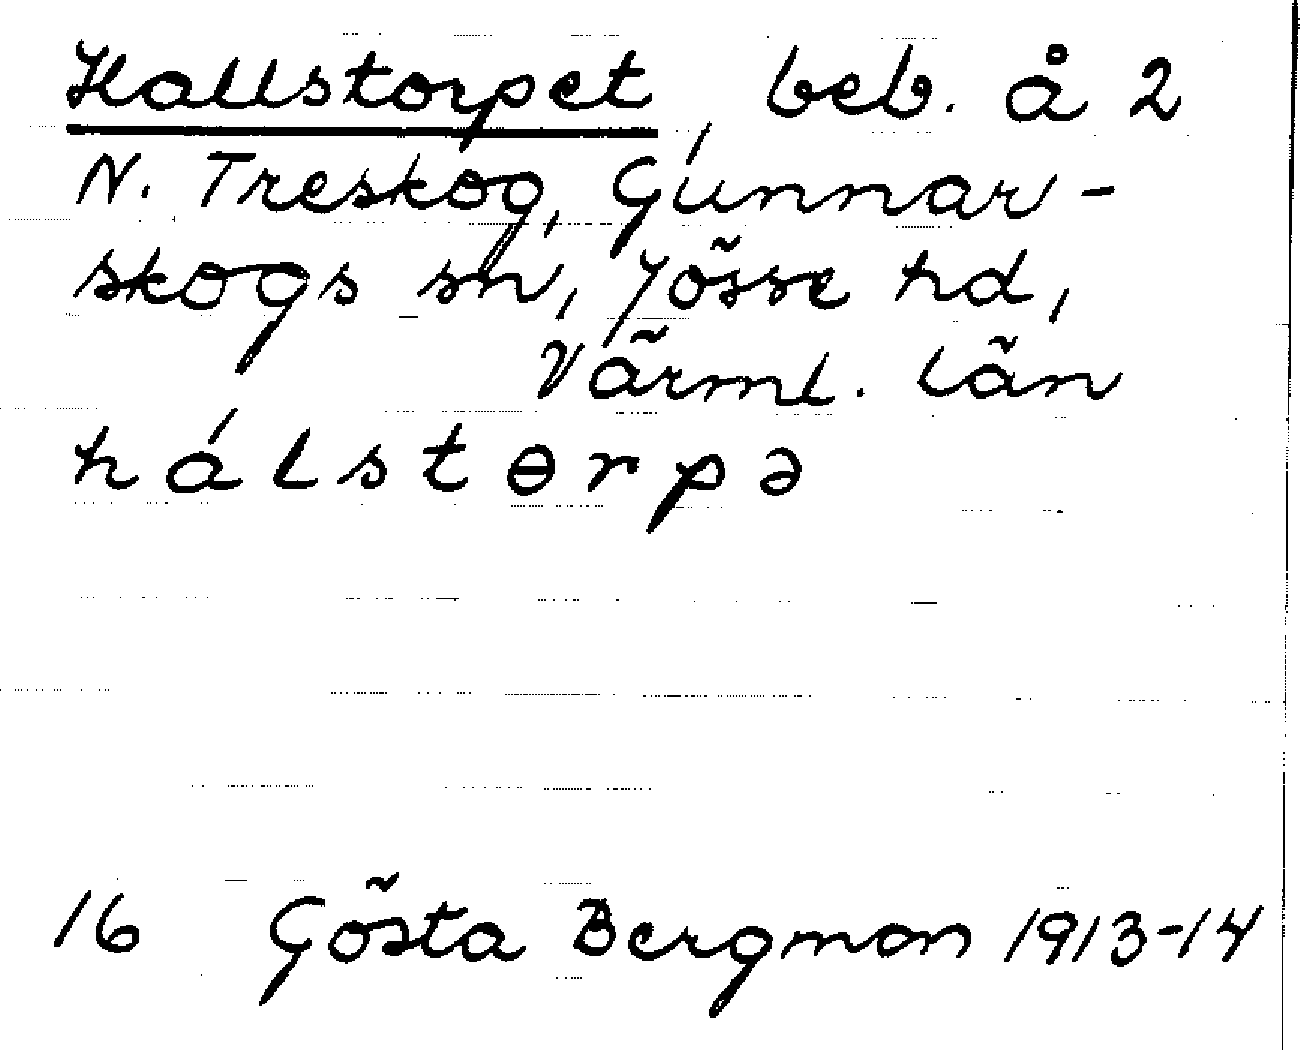 Hallstorpet, beb. å 2
N. Treskog, Gunnar-
skogs sn, Jösse hd,
Värml. län
hálstɵrpə
16 Gösta Bergman 1913-14